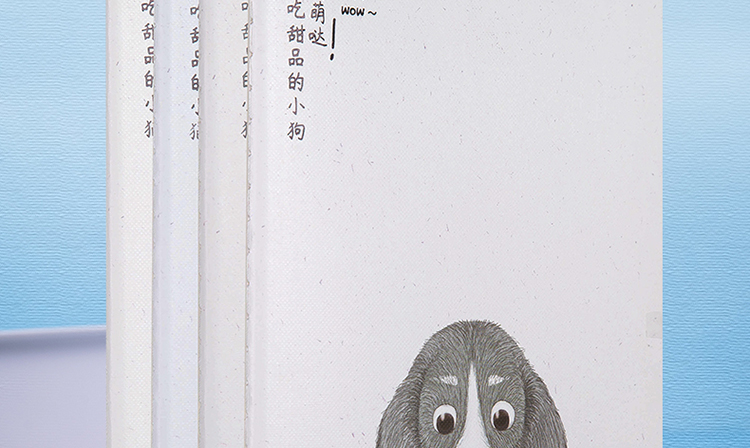 吃甜品的小狗
吃甜品的小狗
吃甜品的小狗
吃甜品的小狗
萌哒!
wow~